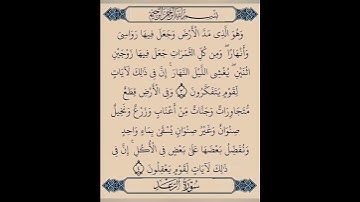 بِسْمِ اللَّهِ الرَّحْمَٰنِ الرَّحِيمِ
وَهُوَ الَّذِي مَدَّ الْأَرْضَ وَجَعَلَ فِيهَا رَوَاسِيَ
وَأَنْهَارًا ۖ وَمِن كُلِّ الثَّمَرَاتِ جَعَلَ فِيهَا زَوْجَيْنِ
اثْنَيْنِ ۖ يُغْشِي اللَّيْلَ النَّهَارَ ۚ إِنَّ فِي ذَٰلِكَ لَآيَاتٍ
لِّقَوْمٍ يَتَفَكَّرُونَ ﴿٣﴾ وَفِي الْأَرْضِ قِطَعٌ
مُّتَجَاوِرَاتٌ وَجَنَّاتٌ مِّنْ أَعْنَابٍ وَزَرْعٌ وَنَخِيلٌ
صِنْوَانٌ وَغَيْرُ صِنْوَانٍ يُسْقَىٰ بِمَاءٍ وَاحِدٍ
وَنُفَضِّلُ بَعْضَهَا عَلَىٰ بَعْضٍ فِي الْأُكُلِ ۚ إِنَّ فِي
ذَٰلِكَ لَآيَاتٍ لِّقَوْمٍ يَعْقِلُونَ ﴿٤﴾
سُورَةُ الرَّعْدِ